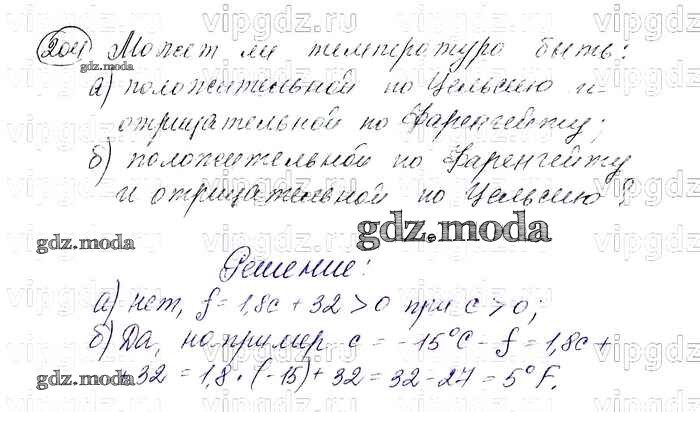 204 Может ли температура быть:
а) положительной по Цельсию и
отрицательной по Фаренгейту;
б) положительной по Фаренгейту
и отрицательной по Цельсию?
gdz.moda
Решение:
а) нет, f = 1,8c + 32 > 0 при c > 0;
б) Да, например c = -15°C - f = 1,8c +
+ 32 = 1,8 · (-15) + 32 = 32 - 27 = 5°F.